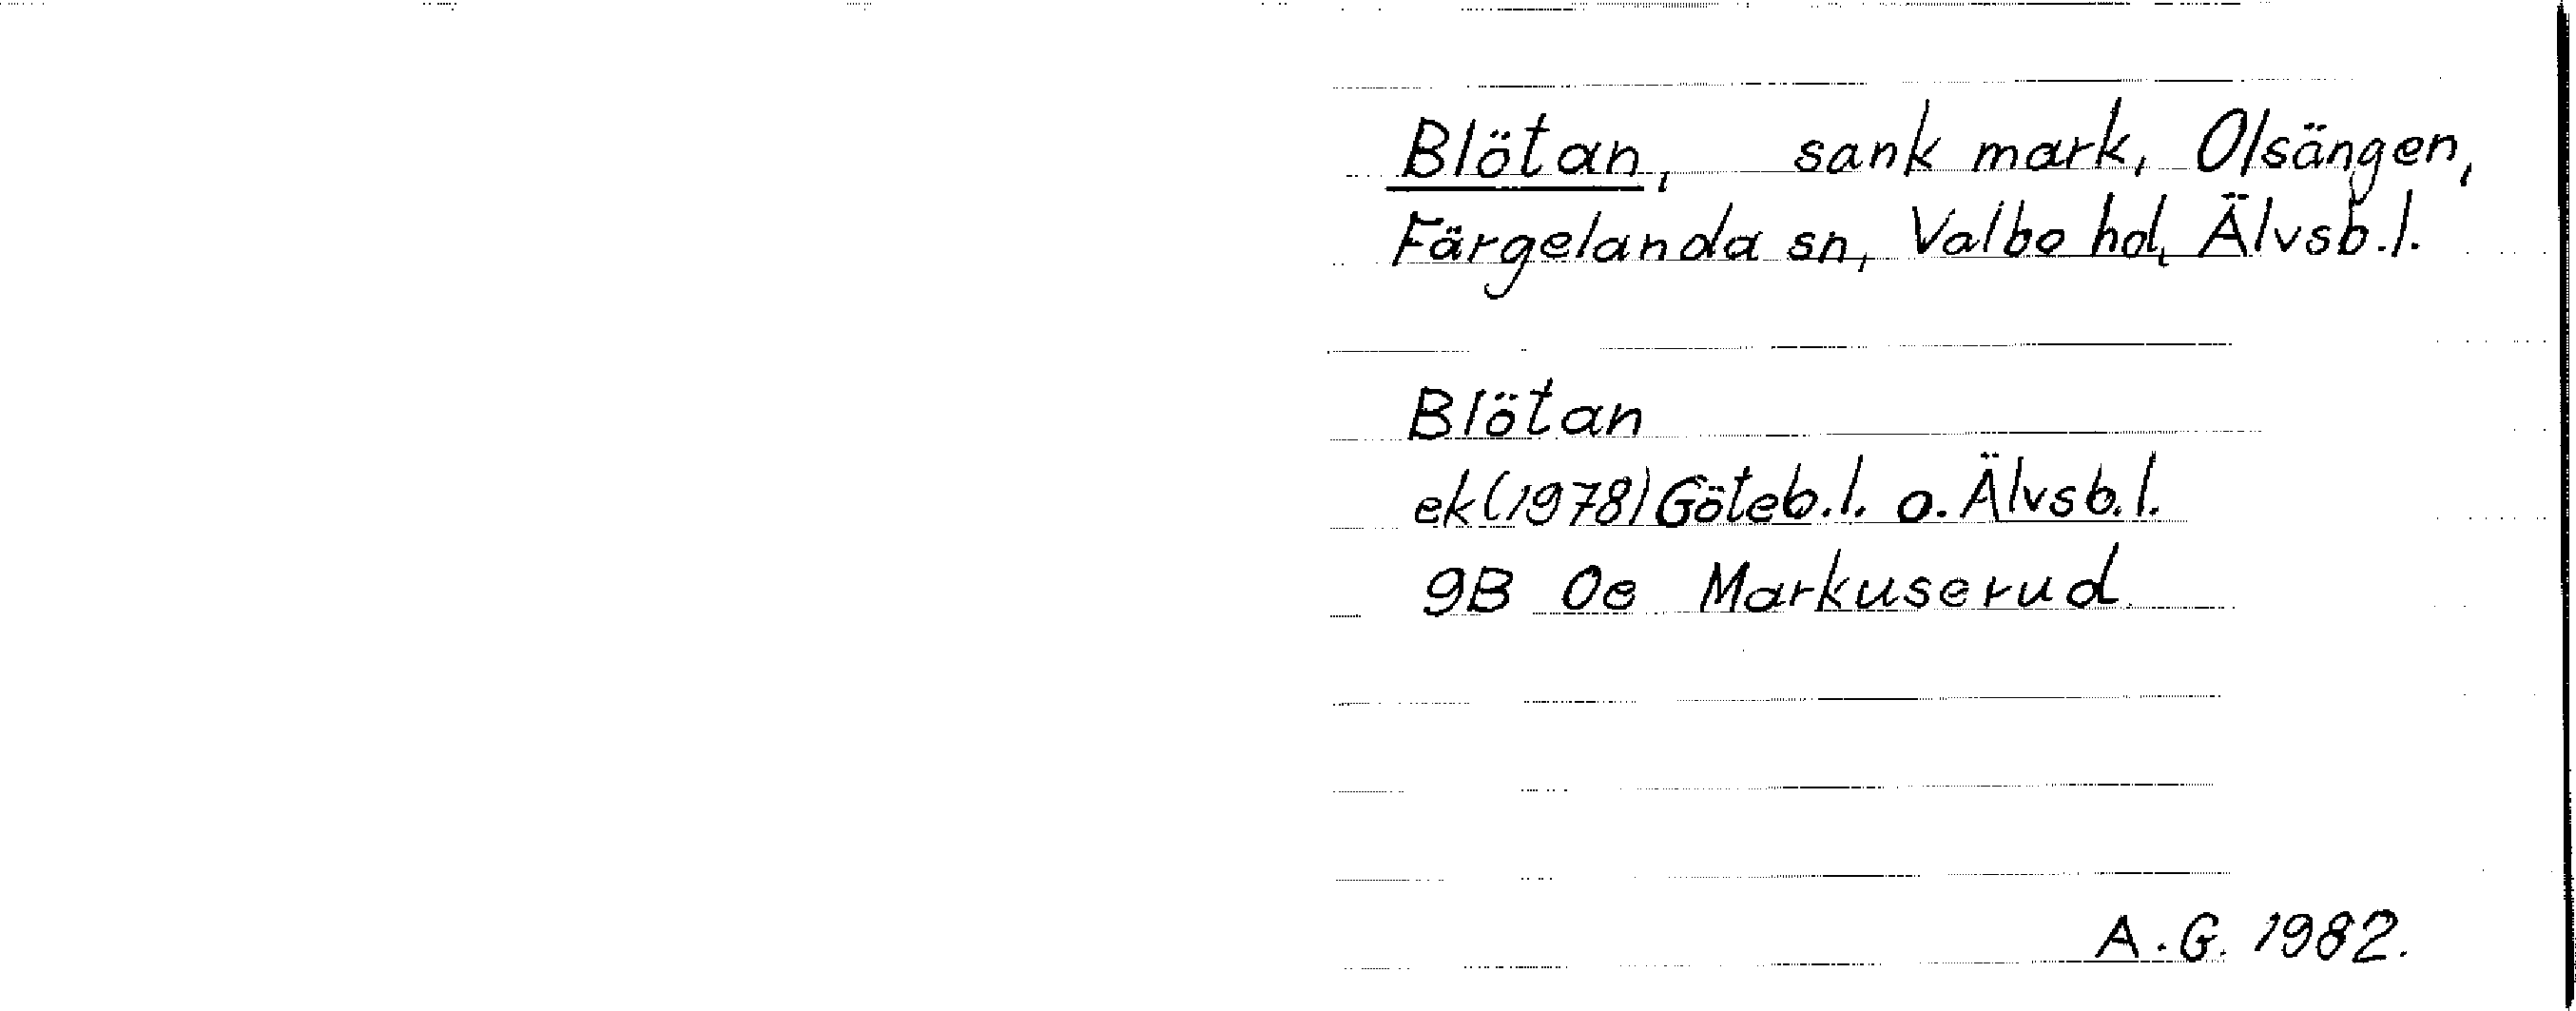 Blötan, sank mark, Olsängen,
Färgelanda sn, Valbo hd, Älvsb.l.
Blötan
ek(1978) Göteb.l. o. Älvsb.l.
9B 0e Markuserud
A.G. 1982.